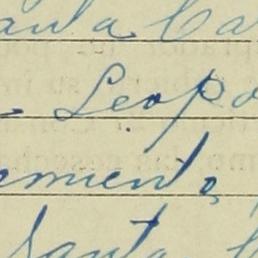 anta Ca
Leopo
miento,
Santa